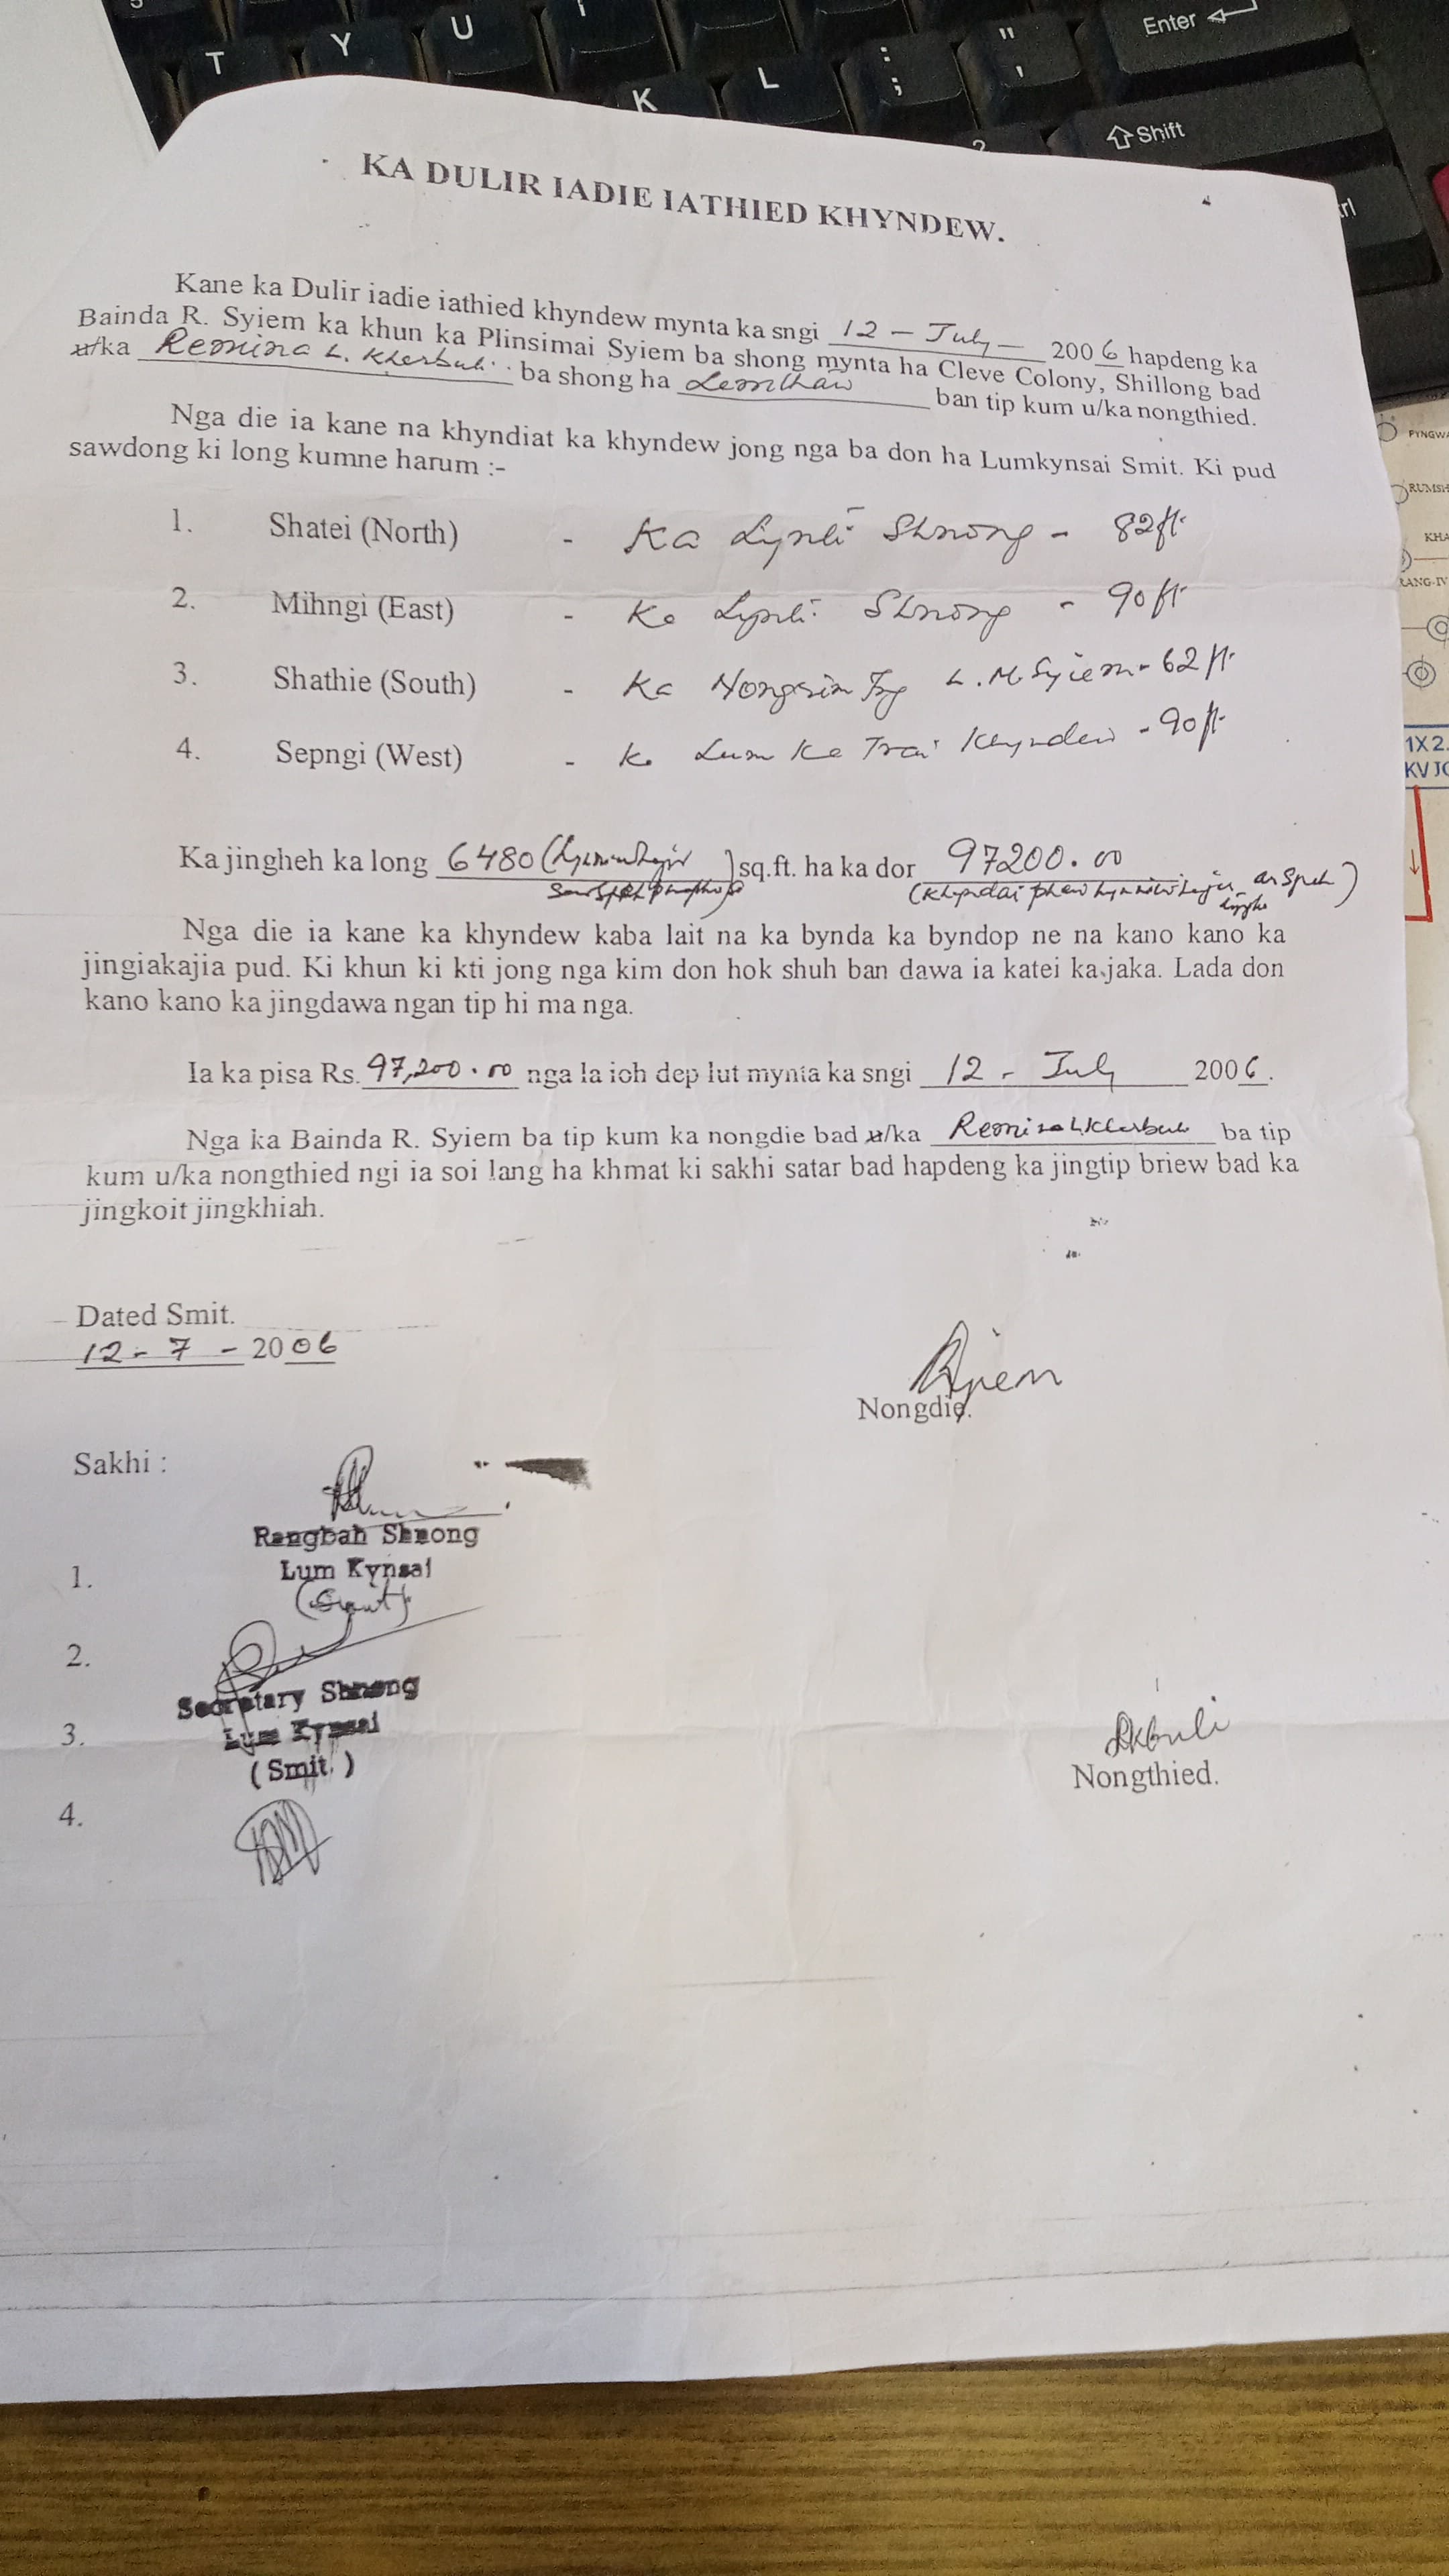 T Y U
K L : ; " ' Enter
Shift
KA DULIR IADIE IATHIED KHYNDEW.
Kane ka Dulir iadie iathied khyndew mynta ka sngi 12 - July - 2006 hapdeng ka
Bainda R. Syiem ka khun ka Plinsimai Syiem ba shong mynta ha Cleve Colony, Shillong bad
u/ka Remina L. Kharbuli ba shong ha ban tip kum u/ka nongthied.
Nga die ia kane na khyndiat ka khyndew jong nga ba don ha Lumkynsai Smit. Ki pud
sawdong ki long kumne harum :-
1. Shatei (North) - Ka Lynti Shnong - 82ft.
2. Mihngi (East) - Ka Lynti Shnong - 90ft.
3. Shathie (South) - Ka L. M. Syiem - 62ft.
4. Sepngi (West) - Ka Lum Ka Trai Khyndew - 90ft.
Ka jingheh ka long 6480 ( ) sq.ft. ha ka dor 97200.00
(Khyndai phew hynniew hajar ar spah)
Nga die ia kane ka khyndew kaba lait na ka bynda ka byndop ne na kano kano ka
jingiakajia pud. Ki khun ki kti jong nga kim don hok shuh ban dawa ia katei ka jaka. Lada don
kano kano ka jingdawa ngan tip hi ma nga.
Ia ka pisa Rs. 97,200.00 nga la ioh dep lut mynta ka sngi 12 - July 2006.
Nga ka Bainda R. Syiem ba tip kum ka nongdie bad u/ka Remina L. Kharbuli ba tip
kum u/ka nongthied ngi ia soi lang ha khmat ki sakhi satar bad hapdeng ka jingtip briew bad ka
jingkoit jingkhiah.
Dated Smit.
12 - 7 - 2006
Nongdie.
Sakhi :
Rangbah Shnong
1. Lum Kynsai
(Smit)
2.
Secretary Shnong
3. Lum Kynsai
(Smit)
Nongthied.
4.